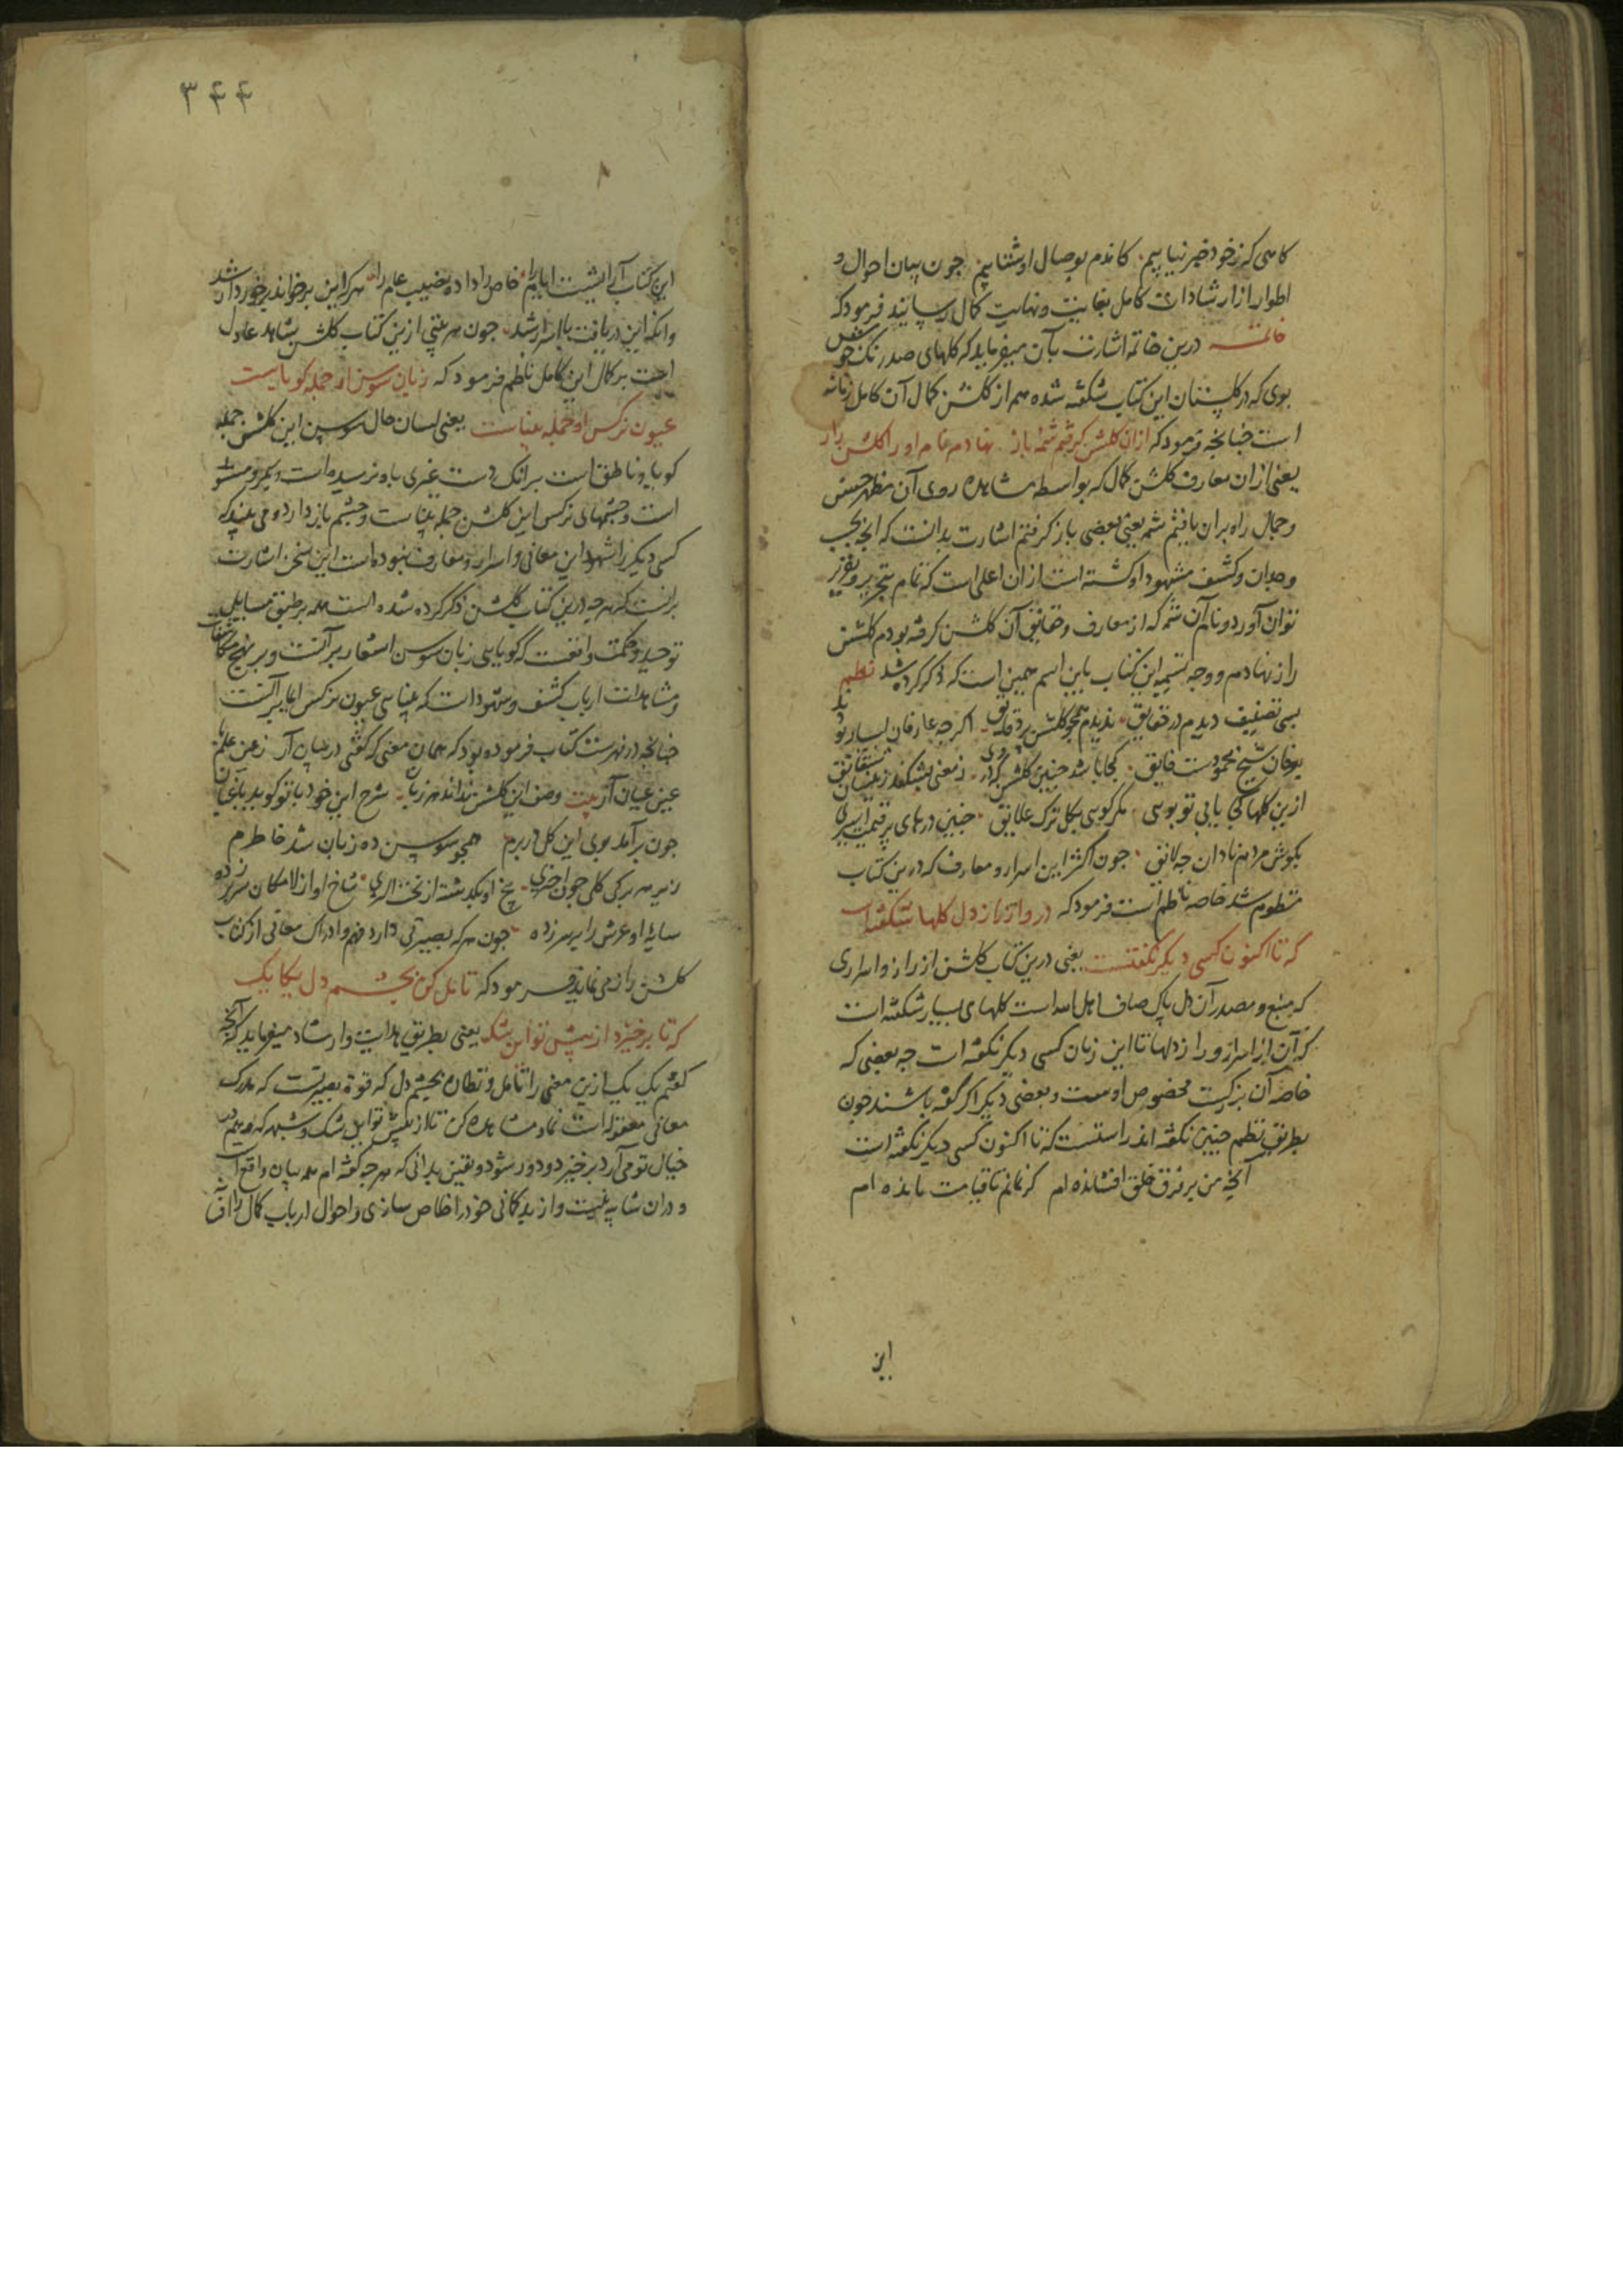 کاهی که زخود خبر نیابیم کاندم بوصال او شتابیم جون بیان احوال و
اطوار از ارشادات کامل بغایت و نهایت کمال رسانید فرمود که
خاتمه درین خاتمه اشارت بآن میفرماید که کلهای صد رنک خوش
بوی که در کلستان این کتاب شکفته شده هم از کلشن کمال آن کامل زمانه
است جنانجه فرمود که ازان کلشن کرفتم شمهٔ باز نهادم نام او را کلشن راز
یعنی ازان معارف کلشن کمال که بواسطه مشاهده روی آن مظهر حسن
و جمال راه بران یافتم شمهٔ یعنی بعضی باز کرفتم اشارت بدانست که انجه بحسب
وجدان و کشف مشهود او کشته است ازان اعلی است که تمام بتحریر و تقریر
توان آورد و نام آن شمه که از معارف و حقایق آن کلشن کرفته بودم کلشن
راز نهادم و وجه تسمیه این کتاب باین اسم همین است که ذکر کرده شد نظم
بسی تصنیف دیدم در حقایق ندیدم همجو کلشن پر دقایق اکرجه عارفان بسیار بودند
بعرفان شیخ محمودست فایق کجا باشد جنین کلشن که هر دم ز معنی بشکفد زینسان شقایق
ازین کلها کجا یابی تو بویی مکر کویی بکل ترک علایق جنین درهای پر قیمت اسیری
بکوش مردم نادان جه لایق جون اکثر این اسرار و معارف که درین کتاب
منظوم شد خاصه ناظم است فرمود که درو از راز دل کلها شکفتست
که تا اکنون کسی دیکر نکفتست یعنی درین کتاب کلشن از راز و اسراری
که منبع و مصدر آن دل پاک صاف اهل الله است کلهای بسیار شکفته است
که آن از اسرار و راز دلها تا این زمان کسی دیکر نکفته است جه بعضی که
خاصه آن بزرکست مخصوص اوست و بعضی دیکر اکر کفته باشند جون
بطریق نظم جنین نکفته اند راستست که تا اکنون کسی دیکر نکفته است
آنجه من بر فرق خلق افشانده ام کر نمانم تا قیامت مانده ام
این
۳۴۴
این کتاب آرایشیست ایام را خاص را داده نصیب عام را هر که این برخواند برخوردار شد
وانکه این دریافت با اسرار شد جون هر بیتی ازین کتاب کلشن شاهد عادل
است بر کمال این کامل ناظم فرمود که زبان سوسن او جمله کویاست
عیون نرکس او جمله بیناست یعنی لسان حال سوسن این کلشن جمله
کویا و ناطق است برانک دست غیری باو نرسیده است و بکر و
است و جشمهای نرکس این کلشن جمله بیناست و جشم باز دارد و می بیند که
کسی دیکر را شهود این معانی و اسرار و معارف نبوده است این سخن اشارت
برانست که هر جه درین کتاب کلشن ذکر کرده شده است همه بر طبق مسایل
توحید و حکمت واقعست که کویایی زبان سوسن اشعار بر آنست و بر نهج مکاشفات
و مشاهدات ارباب کشف و شهود است که بینایی عیون نرکس ایما بر آنست
جنانجه در فهرست کتاب فرموده بود که همان معنی که کفتی در بیان آر ز عین علم با
عین عیان آر بیت وصف این کلشن نداند هر زبان شرح این خود با تو کوید باغبان
جون برآمد بوی این کل در برم همجو سوسن ده زبان شد خاطرم
زیر هر برکی کلی جون اختری بیخ او بکذشته از تخت الثری شاخ او از لامکان سر بر زده
سایهٔ او عرش را بر سر زده جون هر که بصیرتی دارد فهم و ادراک معانی از کتاب
کلشن راز می نماید فرمود که تامل کن بجشم دل یکایک
که تا برخیزد از پیش تو این شک یعنی بطریق هدایت و ارشاد میفرماید که آنجه
کفتم یک یک ازین معنی را تامل و نظاره بجشم دل که قوة بصیرتست که مدرک
معانی معقوله است نما و مشاهده کن تا از پیش تو این شک و شبهه که وهم در
خیال تو می آرد برخیزد و دور شود و یقین بدانی که هر جه کفته ام همه بیان واقع است
و دران شایبه نیست و از بدکمانی خود را خلاص سازی و احوال ارباب کمال را